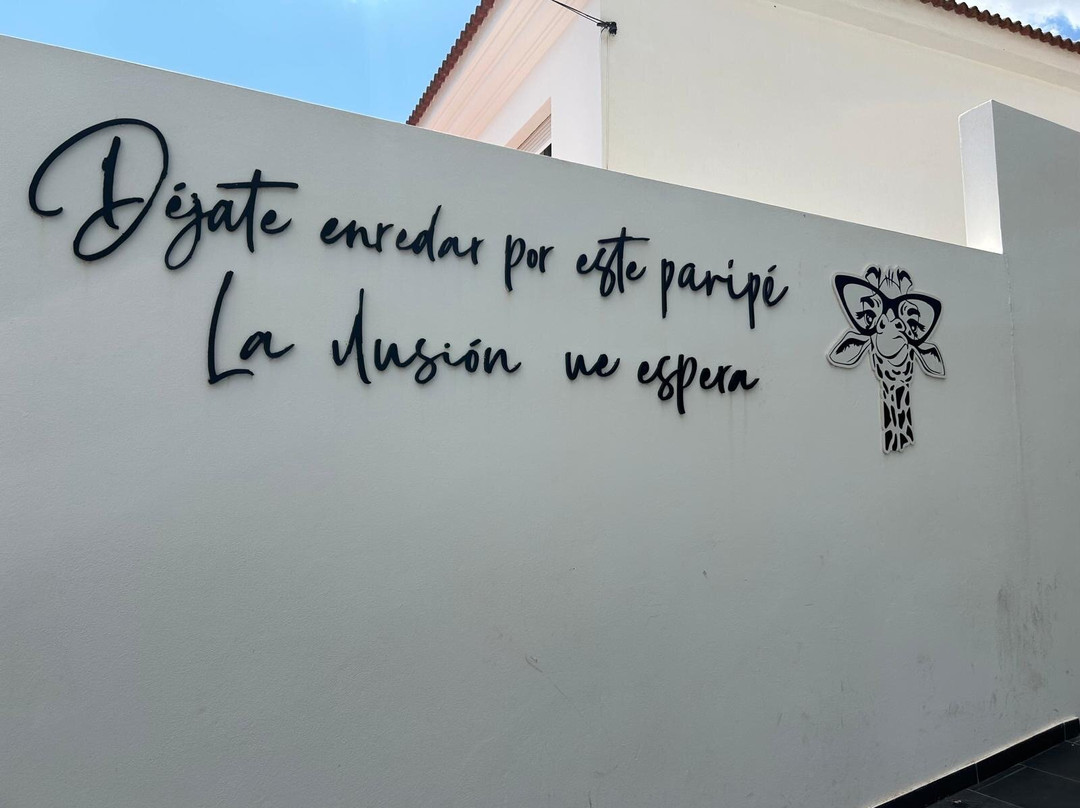 Déjate enredar por este paripé
La ilusión me espera